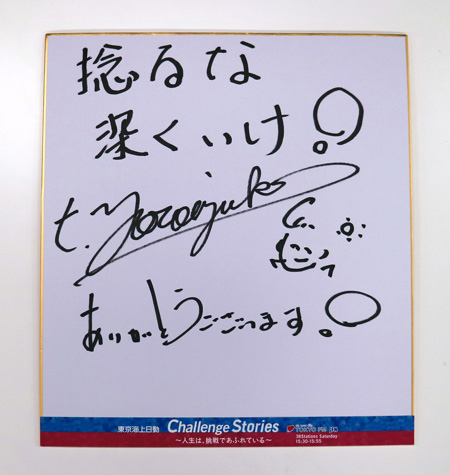 捻るな
深くいけ!
ありがとうございます!
東京海上日動 Challenge Stories TOKYO FM
38Stations Saturday
～人生は、挑戦であふれている～ 15:30-15:55